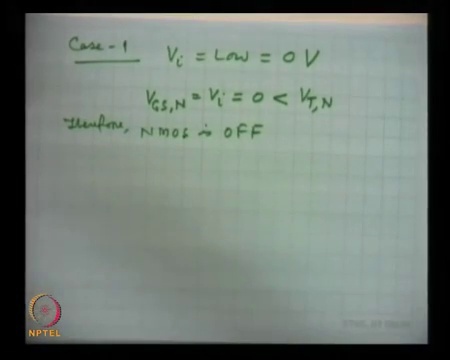 Case-1 Vi = Low = 0 V
VGS,N = Vi = 0 < VT,N
Therefore, NMOS is OFF
NPTEL